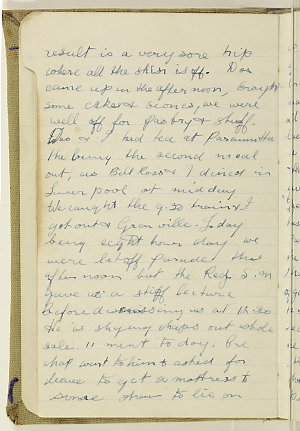 result is a very sore hip
where all the skin is off. Dos
came up in the afternoon, brought
some cakes & scones, we were
well off for pastry & stuff.
Dos & I had tea at Paramatta
the being the second meal
out, as Bill Ross & I dined in
Liverpool at midday
We caught the 9.50 train &
got out & Granville. Today
being eight hour day we
were let off parades this
afternoon but the Reg. S.M
gave us a stiff lecture
before dismissing us at 12.30
He is shying chaps out whole
sale. 11 went to day. One
chap went to him & asked for
leave to get a mattress &
some straw to lie on